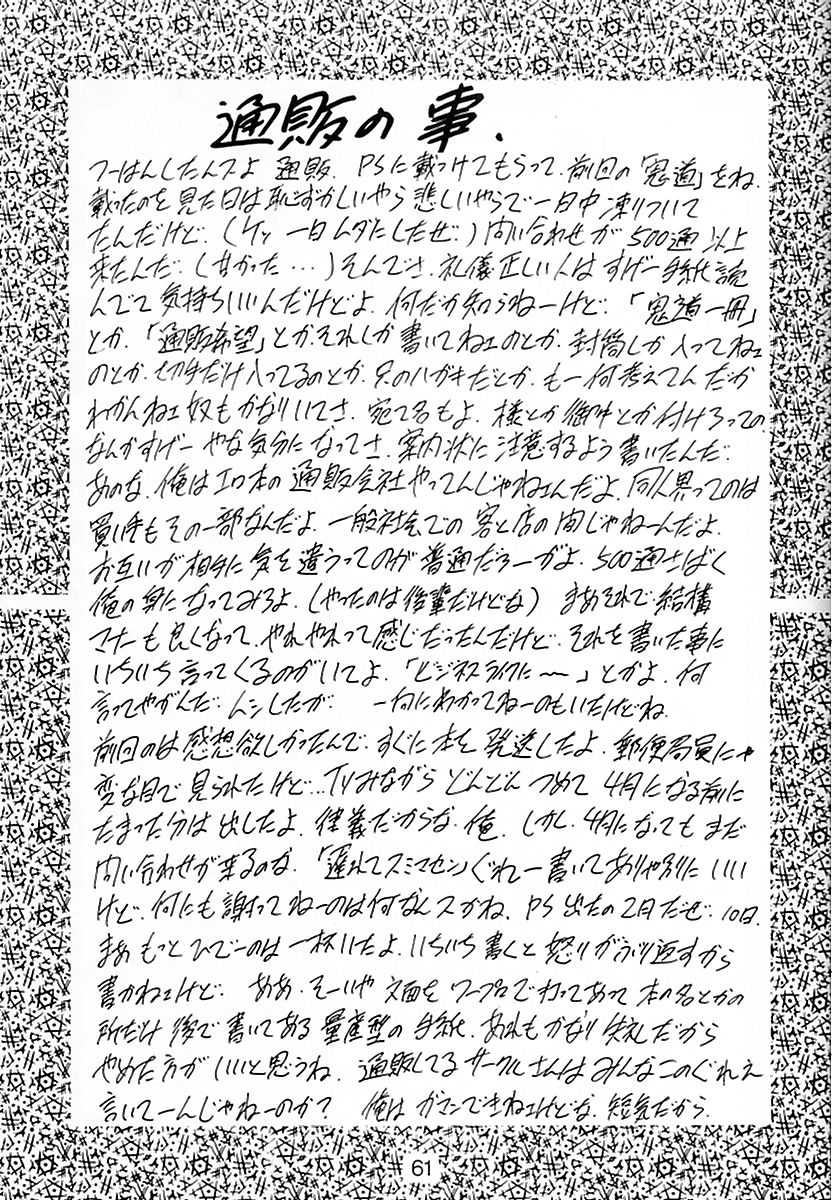 通販の事.
つーはんしたんスよ 通販. PSに載っけてもらって. 前回の「鬼道」をね.
載ったのを見た日は恥ずかしいやら悲しいやらで一日中凍りついて
たんだけど. (ケッ 一日ムダにしたぜ.) 問い合わせが500通以上
来たんだ. (甘かった…) そんでさ. 礼儀正しい人はすげー手紙読
んでて気持ちいいんだけどよ. 何だか知らねーけど. 「鬼道一冊」
とか. 「通販希望」とかそれしか書いてねェのとか. 封筒しか入ってねェ
のとか. 切手だけ入ってるのとか. 只のハガキだとか. もー何考えてんだか
わかんねェ奴もかなりいてさ. 宛て名もよ. 様とか御中とか付けろっての.
なんかすげー やな気分になってさ. 案内状に注意するよう書いたんだ.
あのな. 俺はエロ本の通販会社やってんじゃねェんだよ. 同人界ってのは
買い手もその一部なんだよ. 一般社会での客と店の間じゃねーんだよ.
お互いが相手に気を遣うってのが普通だろーがよ. 500通さばく
俺の身になってみろよ. (やったのは後輩だけどな) まあそれで結構
マナーも良くなって. やれやれって感じだったんだけど. それを書いた事に
いちいち言ってくるのがいてよ. 「ビジネスライクに〜」とかよ. 何
言ってやがんだ. ムシしたが. 一向にわかってねーのもいたけどね.
前回のは感想欲しかったんで. すぐに本を発送したよ. 郵便局員にゃ
変な目で見られたけど… TVみながら どんどん つめて 4月になる前に
たまった分は出したよ. 律義だからな. 俺. しかし. 4月になっても まだ
問い合わせが来るのな. 「遅れてスミマセン」ぐれー書いてありゃ別にいい
けど. 何にも謝ってねーのは何なんスかね. PS出たの2月だぜ. 10日.
まあ もっとひでーのは一杯いたよ. いちいち書くと怒りがぶり返すから
書かねェけど. ああ. そーいや 文面を ワープロで打ってあって 本の名とかの
所だけ 後で書いてある 量産型の手紙. あれもかなり失礼だから
やめた方がいいと思うね. 通販してるサークルさんはみんなこのぐれェ
言いてーんじゃねーのか? 俺は ガマンできねェけどな. 短気だから.
61